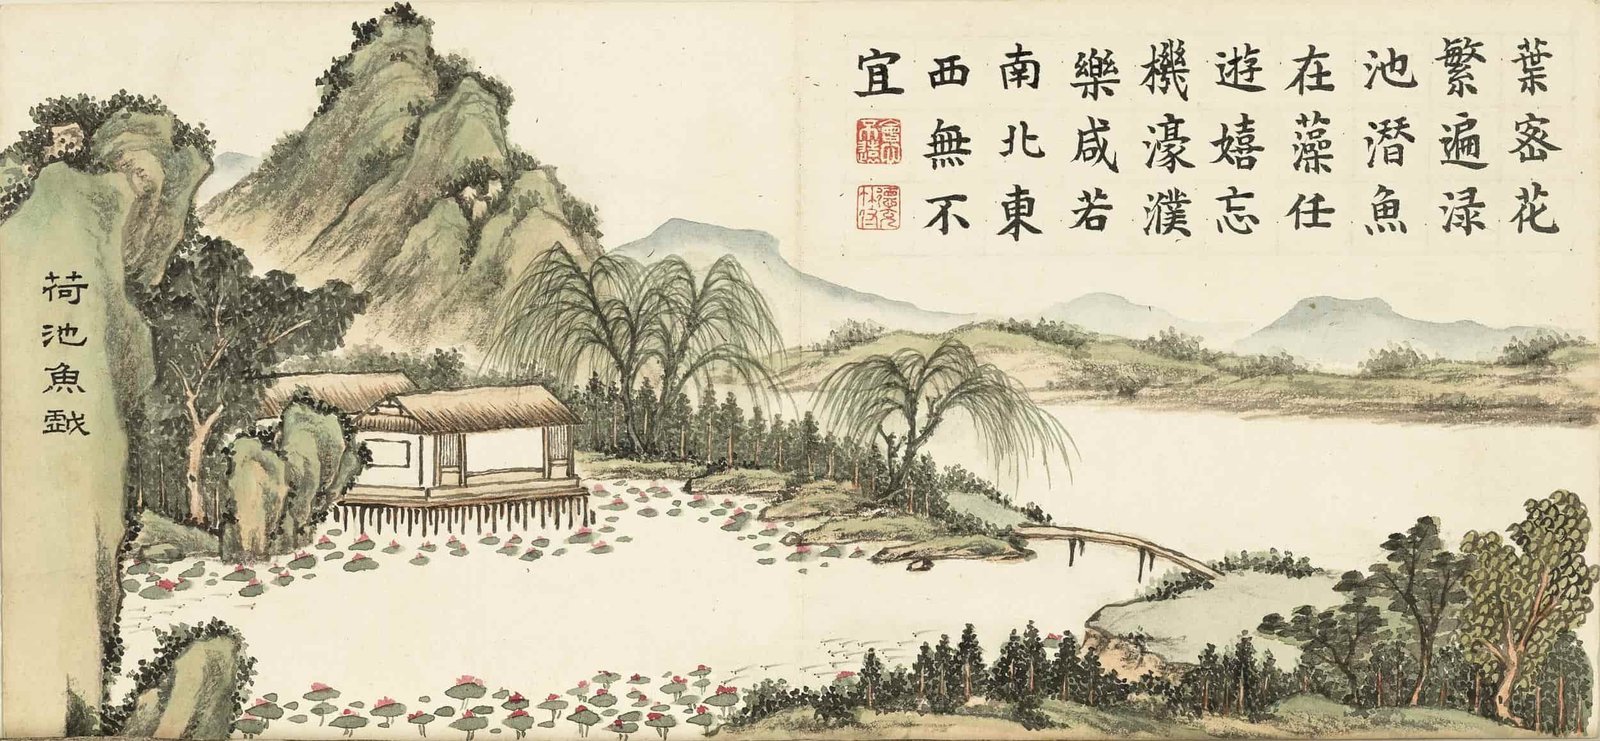 葉密花
繁遍渌
池潛魚
在藻任
遊嬉忘
機濠濮
樂咸若
南北東
西無不
宜
荷池魚戲